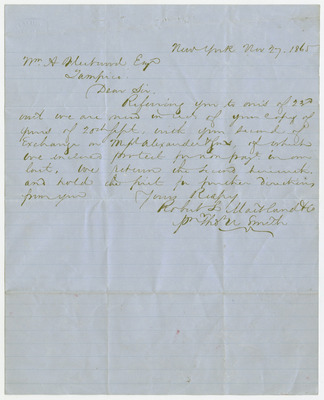 New York Nov 27. 1865
Wm A Esq
Tampico
Dear Sir.
Referring you to ours of 23d
inst we are now in rec. of your copy of
yours of 20th Sept. with your second of
Exchange on Alexander of which
we enclosed protest for non payt in our
last, we return the second herewith
and hold the first for further directions
from you
Yours Respy
Robert L Maitland & Co
pr Smith